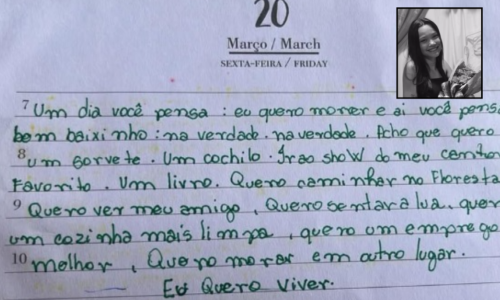 20
Março / March
SEXTA-FEIRA / FRIDAY
7 Um dia você pensa : eu quero morrer e ai você pens
bem baixinho : na verdade . na verdade . Acho que quero
8 um sorvete . Um cochilo . Ir ao show do meu cantor
Favorito . Um livro . Quero caminhar na Floresta
9 Quero ver meu amigo , Quero sentar a lua , quer
um cozinha mais limpa , quero um emprego
10 melhor , Quero morar em outro lugar .
Eu Quero Viver .